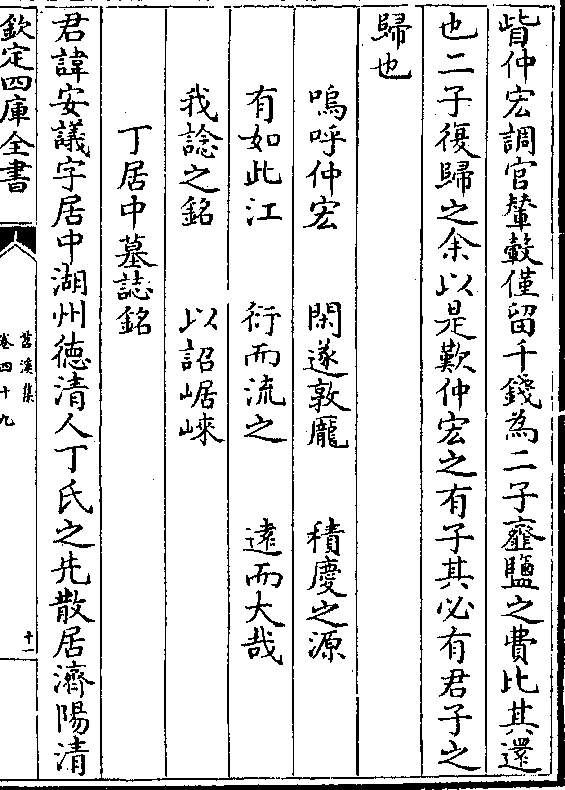 貲仲宏調官輦轂僅留千錢為二子齏鹽之費比其還
也二子復歸之余以是歎仲宏之有子其必有君子之
歸也
嗚呼仲宏　閑邃敦龐　積慶之源
有如此江　衍而流之　遠而大哉
我諗之銘　以詔崌崍
丁居中墓誌銘
君諱安議字居中湖州德清人丁氏之先散居濟陽清
欽定四庫全書
苕溪集
卷四十九
十一